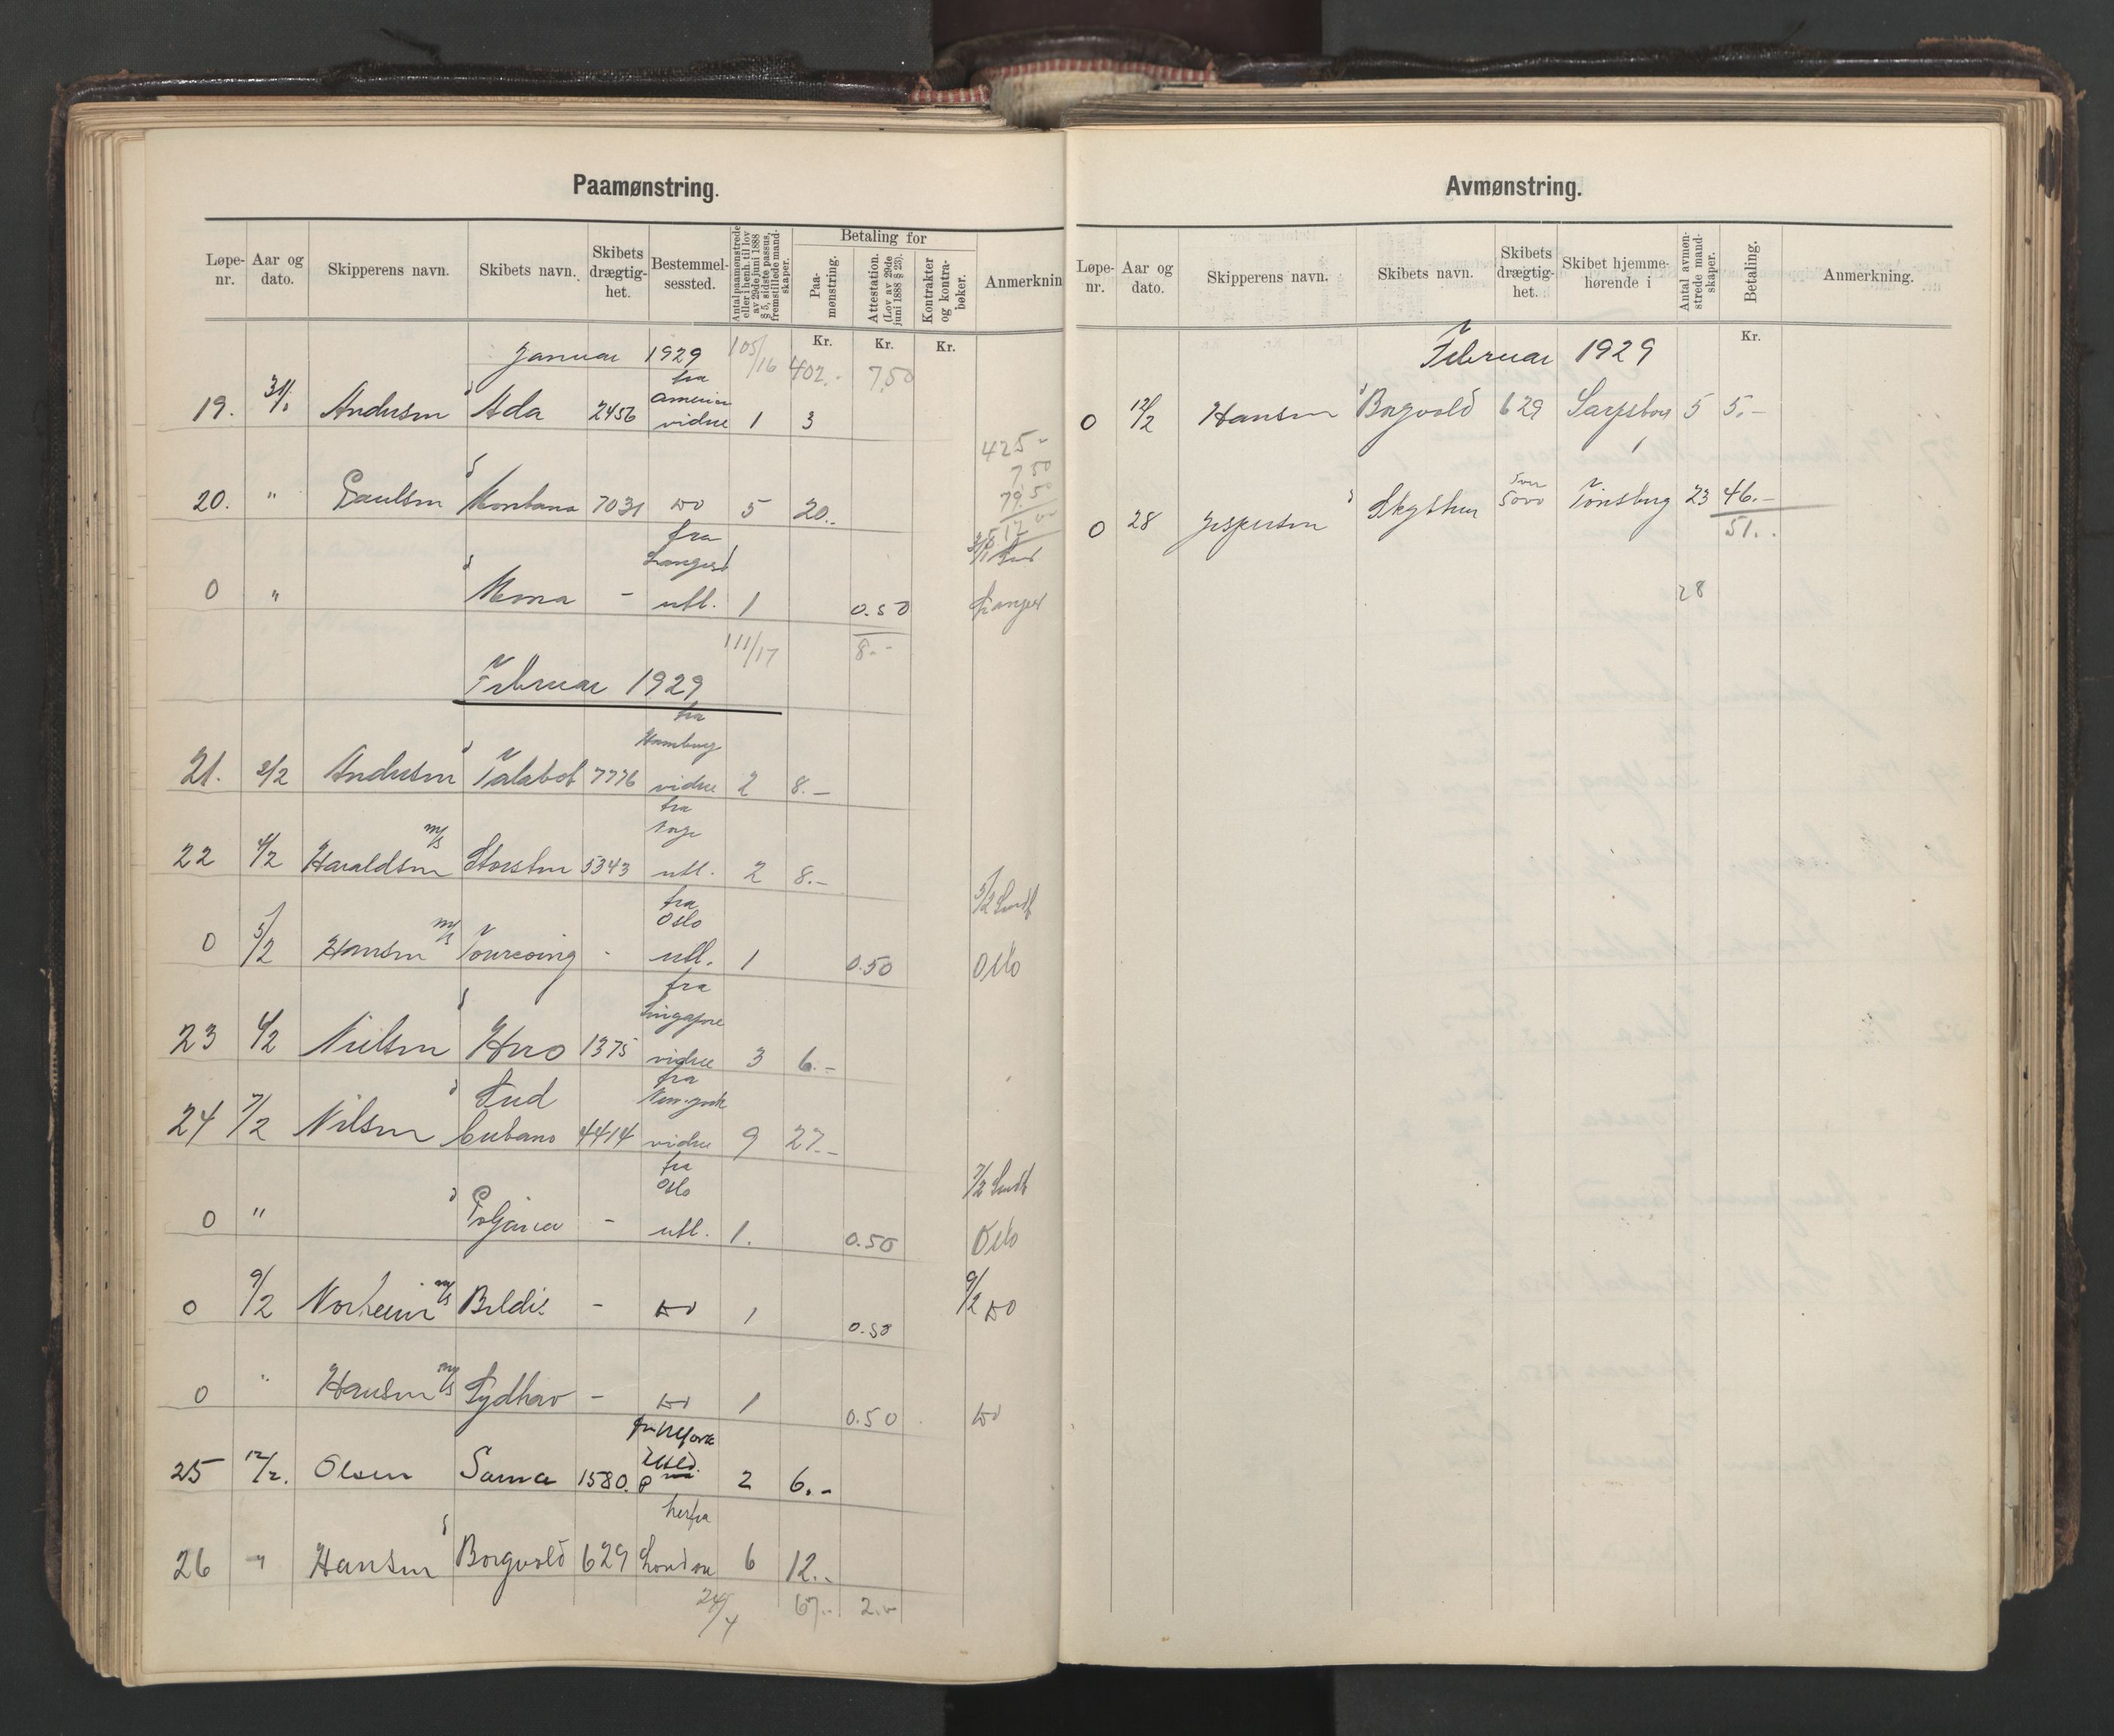 Paamønstring.
Løpe-nr. Aar og dato. Skipperens navn. Skibets navn. Skibets drægtig-het. Bestemmel-sessted. Antal paamønstrede eller i henh. til lov av 29de juni 1888 § 5, sidste passus, fremstillede mand-skaper. Betaling for Paa-mønstring. Attestation. (Lov av 29de juni 1888 § 23). Kontrakter og kontra-bøker. Anmerknin
Kr. Kr. Kr.
Januar 1929 105/16 402.- 7,50
fra
19. 31/1 Andersen s Ada 2456 America vidre 1 3
425.-
7 50
79.50
20. " Paulsen s Montana 7031 do 5 20.-
512 00
fra
Langesd
31/1
0 " s Mona - utl. 1 0.50 Langes
111/17 8.-
Februar 1929
fra
Hamburg
21. 2/2 Andersen s Talabot 7776 vidre 2 8.-
fra
Norge
22 4/2 Haraldsen m/s Storsten 5343 utl. 2 8.-
fra
Oslo
5/2 Sendt
0 5/2 Hansen m/s Tourcoing - utl. 1 0.50 Oslo
fra
Singapore
23 6/2 Nielsen s Hero 1375 vidre 3 6.-
fra
New-york
24 7/2 Nilsen s Sud Cubano 4414 vidre 9 27.-
fra
Oslo
7/2 Sendt
0 " s Poljana - utl. 1. 0.50 Oslo
0 9/2 Norheim m/s Beldis - do 1 0.50 9/2 do
0 " Hansen m/s Sydhav - do 1 0.50 do
fra NYork
25 12/2. Olsen Sama 1580. Utld. 2 6.-
herfra
26 " Hansen s Borgvold 629 London 6 12.-
24/4 67.- 2.-
Avmønstring.
Løpe-nr. Aar og dato. Skipperens navn. Skibets navn. Skibets drægtig-het. Skibet hjemme-hørende i Antal avmøn-strede mand-skaper. Betaling. Anmerkning.
Kr.
Februar 1929
0 12/2 Hansen s Borgvold 629 Sarpsborg 5 5.-
0 28 Jespersen s Skytteren over 5000 Tønsberg 23 46.-
51.-
28